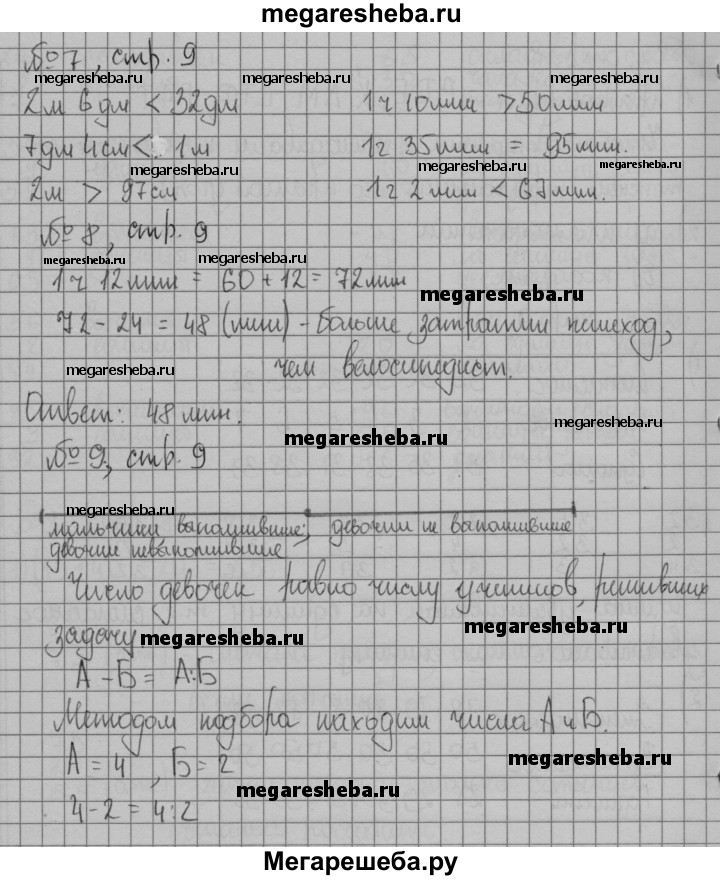 megaresheba.ru
№ 7, стр. 9
megaresheba.ru megaresheba.ru megaresheba.ru
2м 6 дм < 32дм 1ч 10мин > 50мин
7дм 4см < 1м 1ч 35мин = 95мин.
megaresheba.ru megaresheba.ru megaresheba.ru
2м > 97см 1ч 2 мин < 67мин.
№ 8, стр. 9
megaresheba.ru megaresheba.ru
1ч 12мин = 60 + 12 = 72мин
megaresheba.ru
72 - 24 = 48 (мин) - больше затратил пешеход,
megaresheba.ru чем велосипедист.
Ответ: 48 мин.
megaresheba.ru
megaresheba.ru
№ 9, стр. 9
megaresheba.ru
мальчики, выполнившие; девочки не выполнившие
девочки
Число девочек равно числу учеников, решивших
megaresheba.ru
задачу.
megaresheba.ru
А - Б = А:Б
Методом подбора находим числа А и Б.
megaresheba.ru
А = 4, Б = 2
megaresheba.ru
4 - 2 = 4:2
Мегарешеба.ру